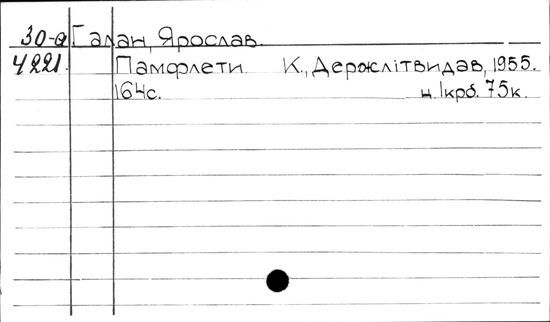 30-а Галан, Ярослав.
4221. Памфлети. К., Держлітвидав, 1955.
164с. ц. 1крб. 75к.